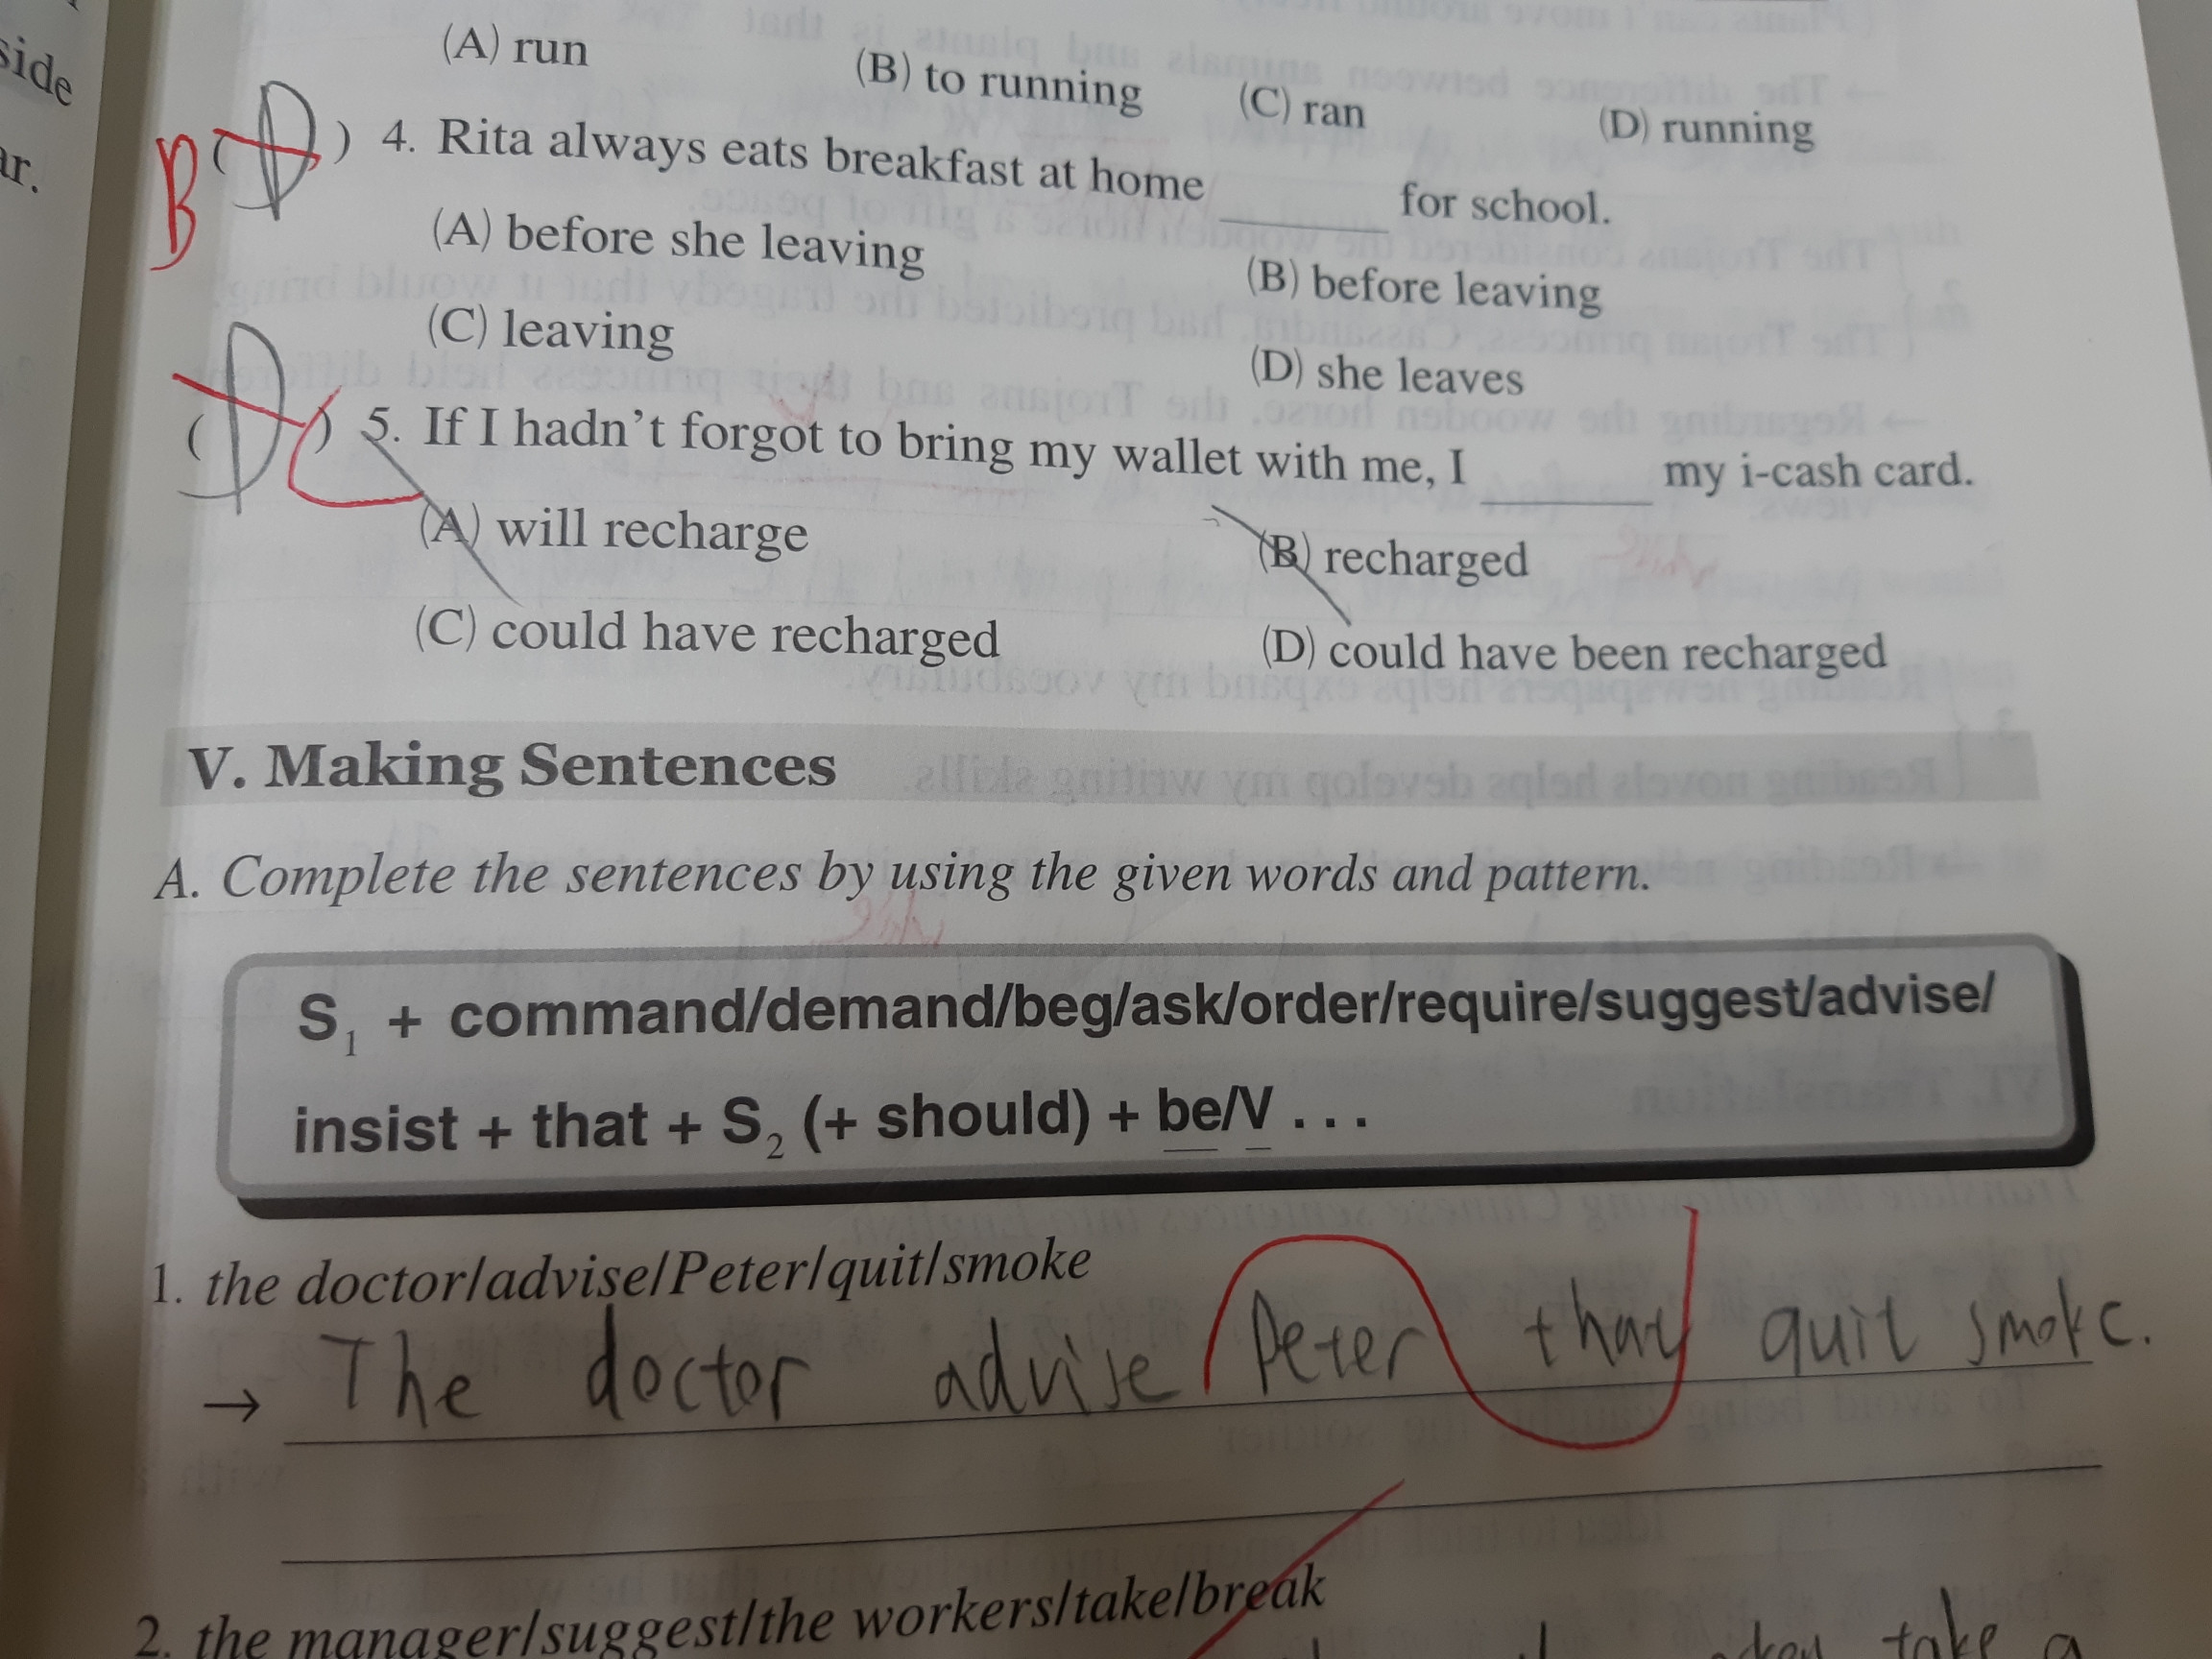 side
ar.
(A) run (B) to running (C) ran (D) running
B (D) 4. Rita always eats breakfast at home ______ for school.
(A) before she leaving (B) before leaving
(C) leaving (D) she leaves
(D) C 5. If I hadn't forgot to bring my wallet with me, I ______ my i-cash card.
(A) will recharge (B) recharged
(C) could have recharged (D) could have been recharged
V. Making Sentences
A. Complete the sentences by using the given words and pattern.
S1 + command/demand/beg/ask/order/require/suggest/advise/
insist + that + S2 (+ should) + be/V ...
1. the doctor/advise/Peter/quit/smoke
→ The doctor advise Peter that quit smoke.
2. the manager/suggest/the workers/take/break
take a